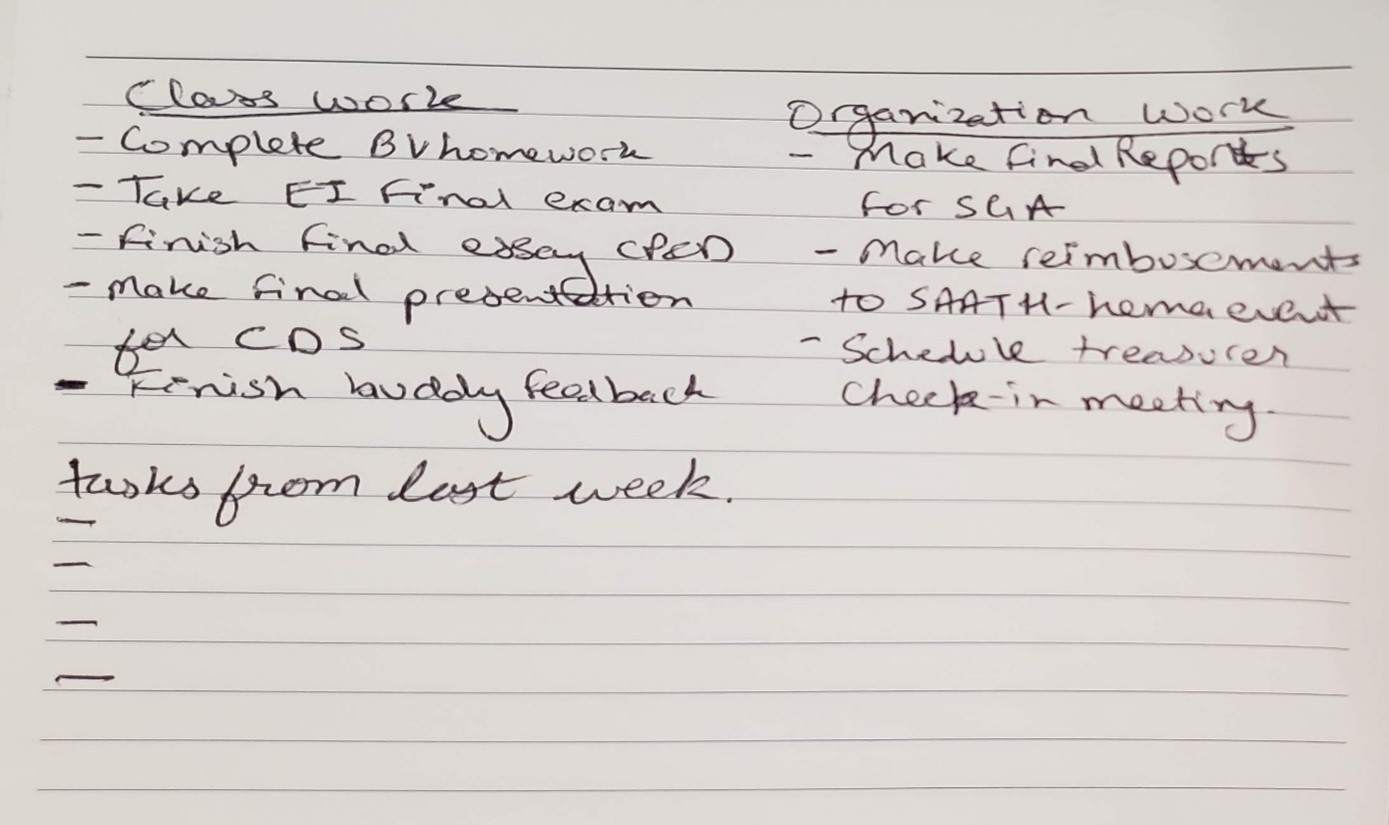 Class work
- Complete BV homework
- Take EI Final exam
- Finish final essay CPCD
- Make final presentation
for CDS
- Finish buddy feedback
Organization Work
- Make final Reports
for SGA
- Make reimbusements
to SAATH-hema event
- Schedule treasurer
Check-in meeting.
tasks from last week.
-
-
-
-